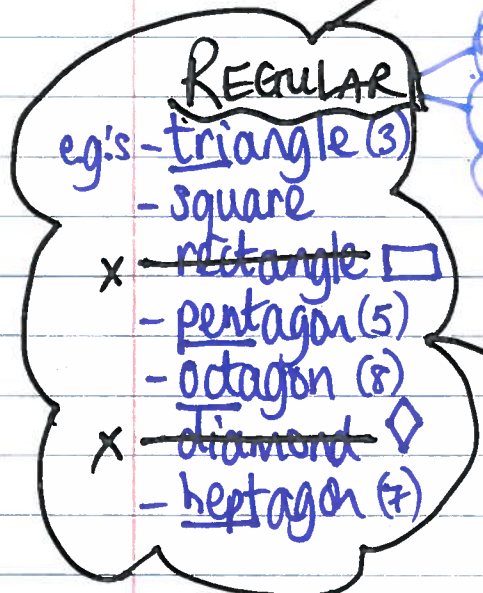 REGULAR
e.g's - triangle (3)
- square
x - rectangle
- pentagon (5)
- octagon (8)
x - diamond
- heptagon (7)